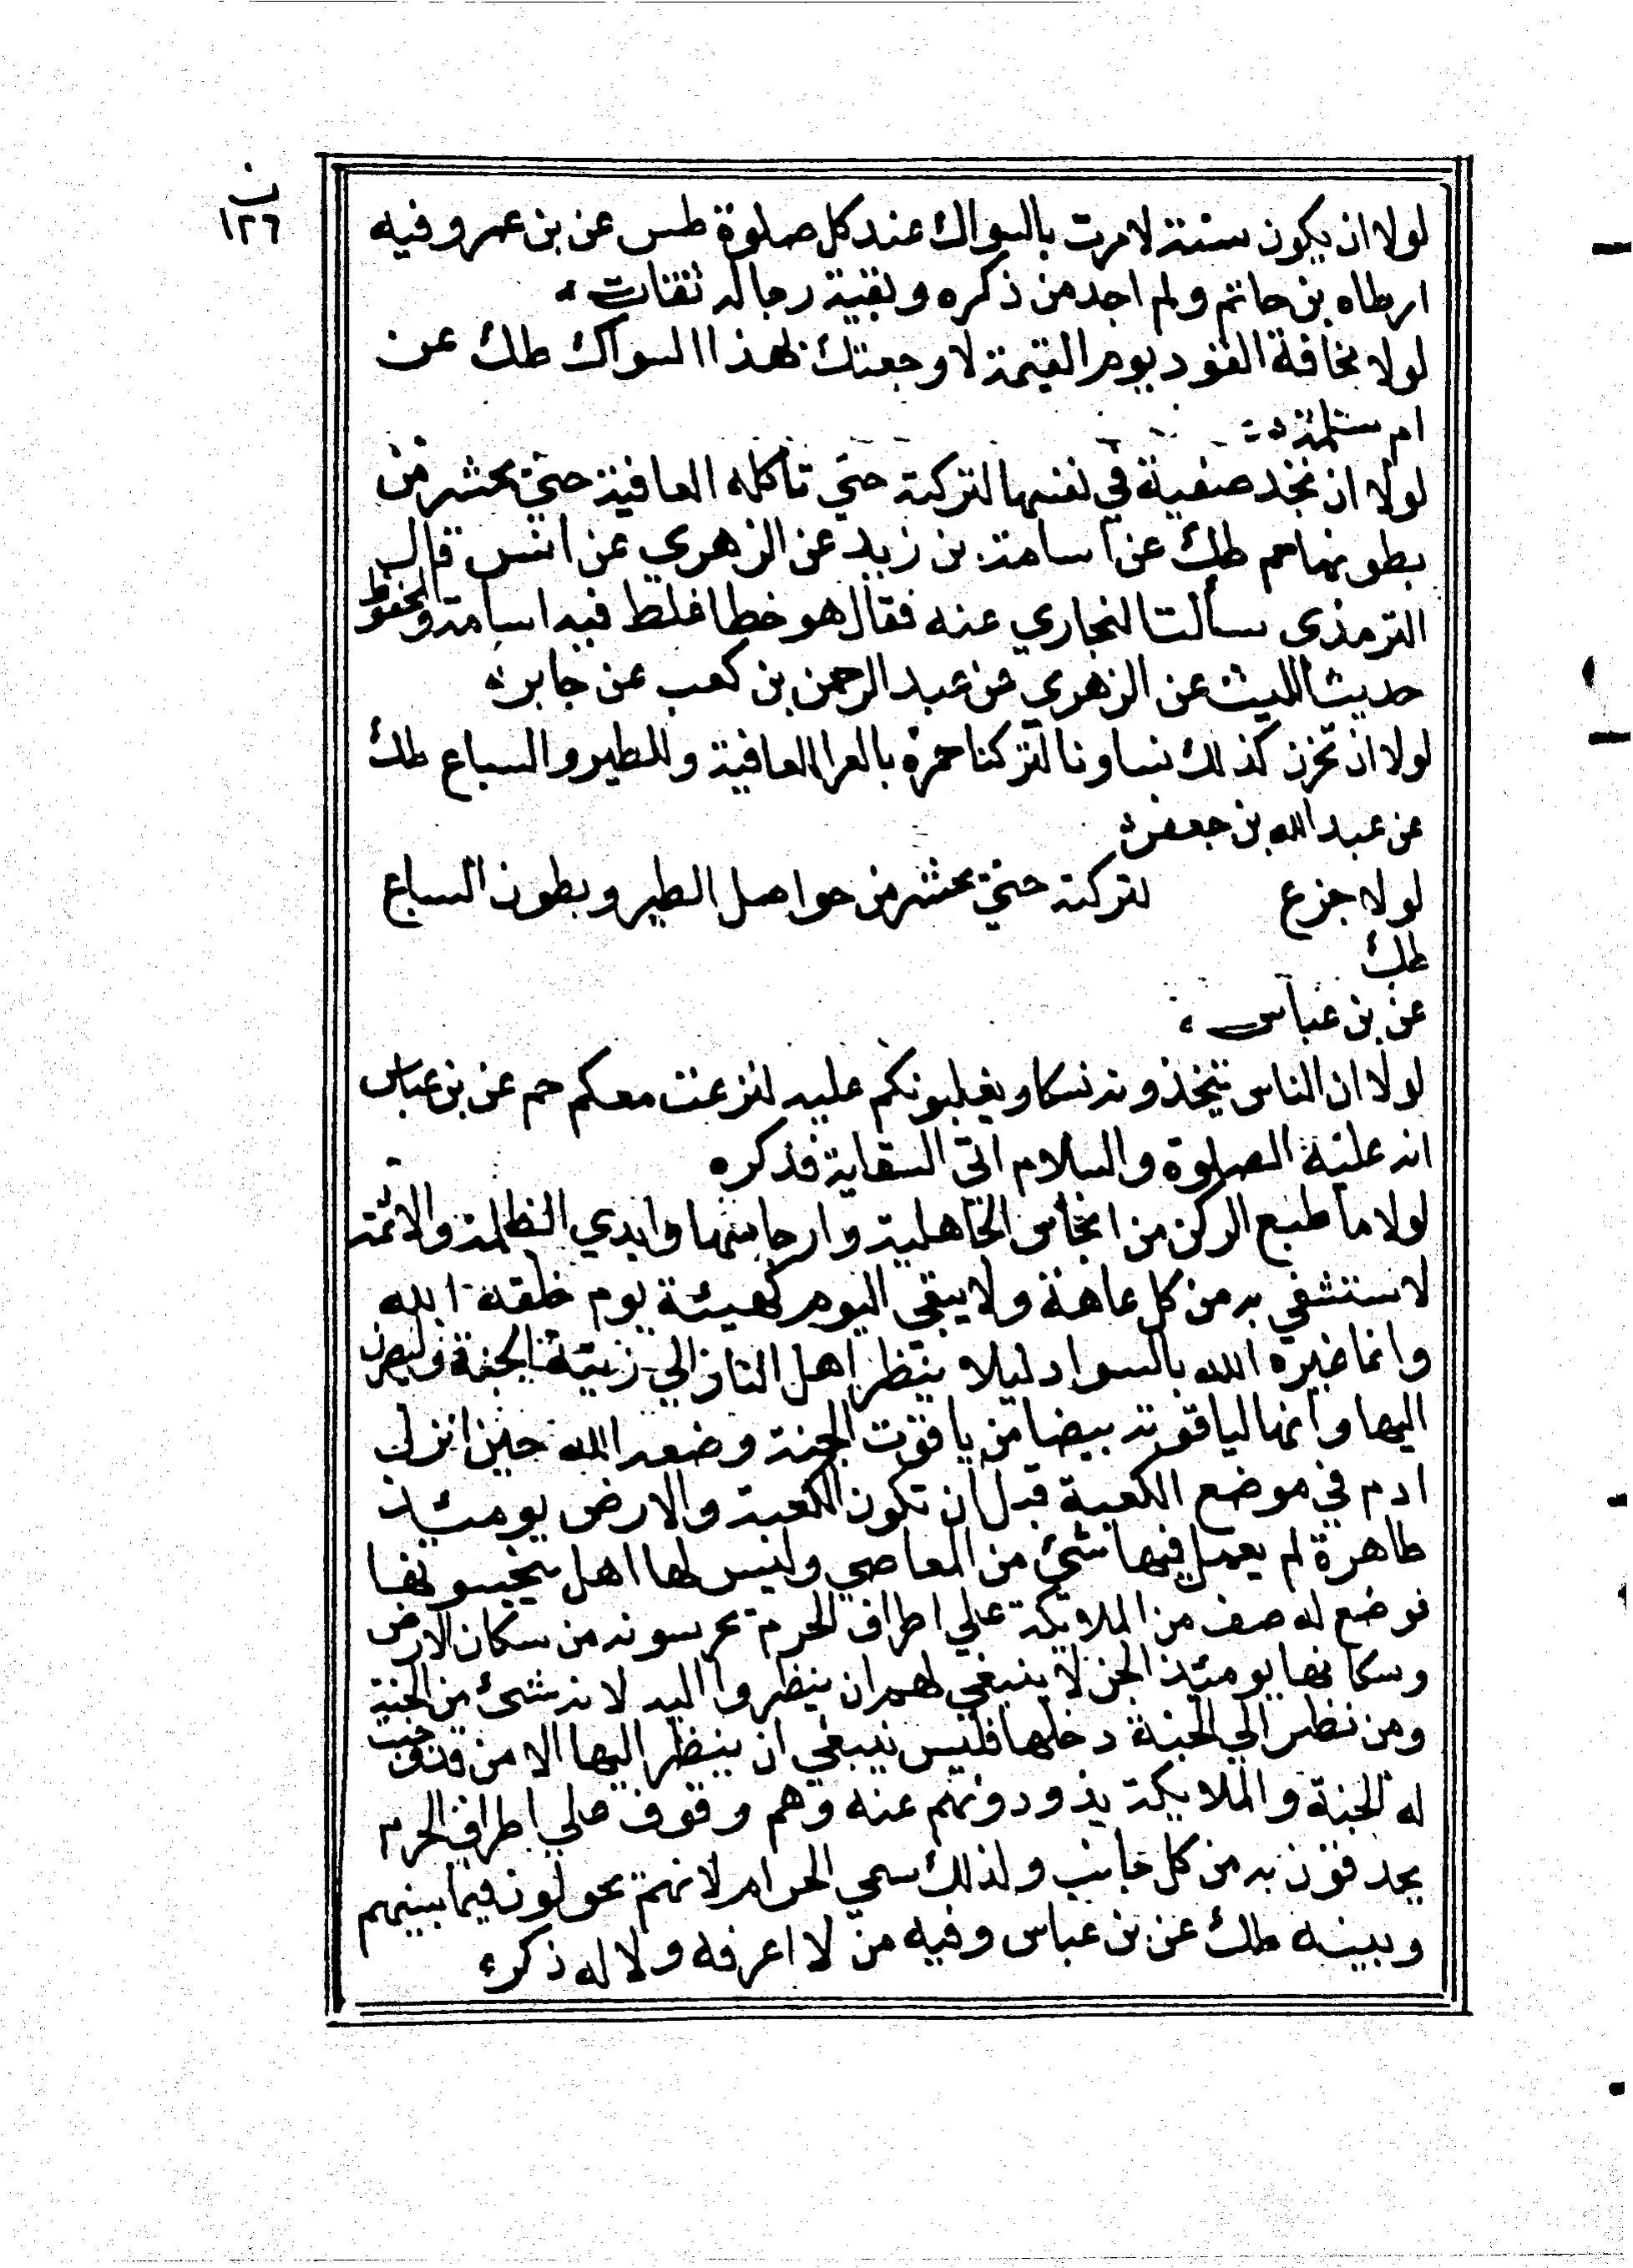 ن
١٢٦
لولا ان يكون سنة لامرت بالسواك عند كل صلوة طس عن بن عمرو وفيه
ارطاه بن حاتم ولم اجد من ذكره وبقية رجاله ثقات
لولا مخافة القود يوم القيمة لاوجعتك بهذا السواك طك عن
ام سلمة
لولا ان تجد صفية في نفسها لتركته حتي تاكله العافية حتي يحشر من
بطونها حم طك عن اسامة بن زيد عن الزهري عن انس قال
الترمذى سالت البخاري عنه فقال هو خطا غلط فيه اسامة والمحفوظ
حديث الليث عن الزهري عن عبد الرحمن بن كعب عن جابر
لولا ان تحزن كذلك نساونا لتركنا حمزه بالعرا للعافية وللطير والسباع طك
عن عبد الله بن جعفر
لولا جزع لتركته حتي يحشر من حواصل الطير وبطون السباع
طك
عن بن عباس
لولا ان الناس يتخذونه نسكا ويغلبونكم عليه لنزعت معكم حم عن بن عباس
انه عليه الصلوة والسلام اتى السقاية فذكره
لولا ما طبع الركن من انجاس الجاهلية وارجاسها وايدي الظلمة والائمة
لاستشفي به من كل عاهة ولا يبقي اليوم كهيئة يوم خلقه الله
وانما غيره الله بالسواد ليلا ينظر اهل النار الي زينة الجنة وليصرن
اليها وانها لياقوتة بيضا من ياقوت الجنة وضعه الله حين انزل
ادم في موضع الكعبة قبل ان تكون الكعبة والارض يومئذ
طاهرة لم يعمل فيها شئ من المعاصي وليس لها اهل ينجسونها
فوضع له صف من الملايكة علي اطراف الحرم يحرسونه من سكان الارض
وسكانها يومئذ الجن لا ينبغي لهم ان ينظروا اليه لانه شئ من الجنة
ومن نظر الي الجنة دخلها فليس ينبغي ان ينظر اليها الا من قد وجبت
له الجنة والملايكة يذودونهم عنه وهم وقوف علي اطراف الحرم
يحدقون به من كل جانب ولذلك سمي الحرام لانهم يحولون فيما بينهم
وبينه طك عن بن عباس وفيه من لا اعرفه ولا له ذكر